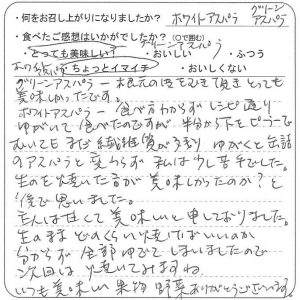 ・何をお召し上がりになりましたか？ ホワイトアスパラ グリーンアスパラ
・食べたご感想はいかがでしたか？（○で囲む）
グリーンアスパラ
・とっても美味しい！ ・おいしい ・ふつう
ホワイトアスパラ ・ちょっとイマイチ ・おいしくない
グリーンアスパラー 根元の皮をむき頂き とっても
美味しかったです。
ホワイトアスパラー 食べ方わからずレシピ通り
ゆがいて食べたのですが 半分から下をピーラーで
むいてもまだ 繊維質が多り ゆがくと缶詰
のアスパラと変わらず 私は少し苦手でした。
生のを焼いた方が美味しかったのか？と
後で思いました。
主人は甘くて美味しいと申しておりました。
生のままどのくらい焼いてばいいのか
分からず全部ゆでてしまいましたので
次回は焼いてみますね
いつも美味しい果物 野菜ありがとうございます。